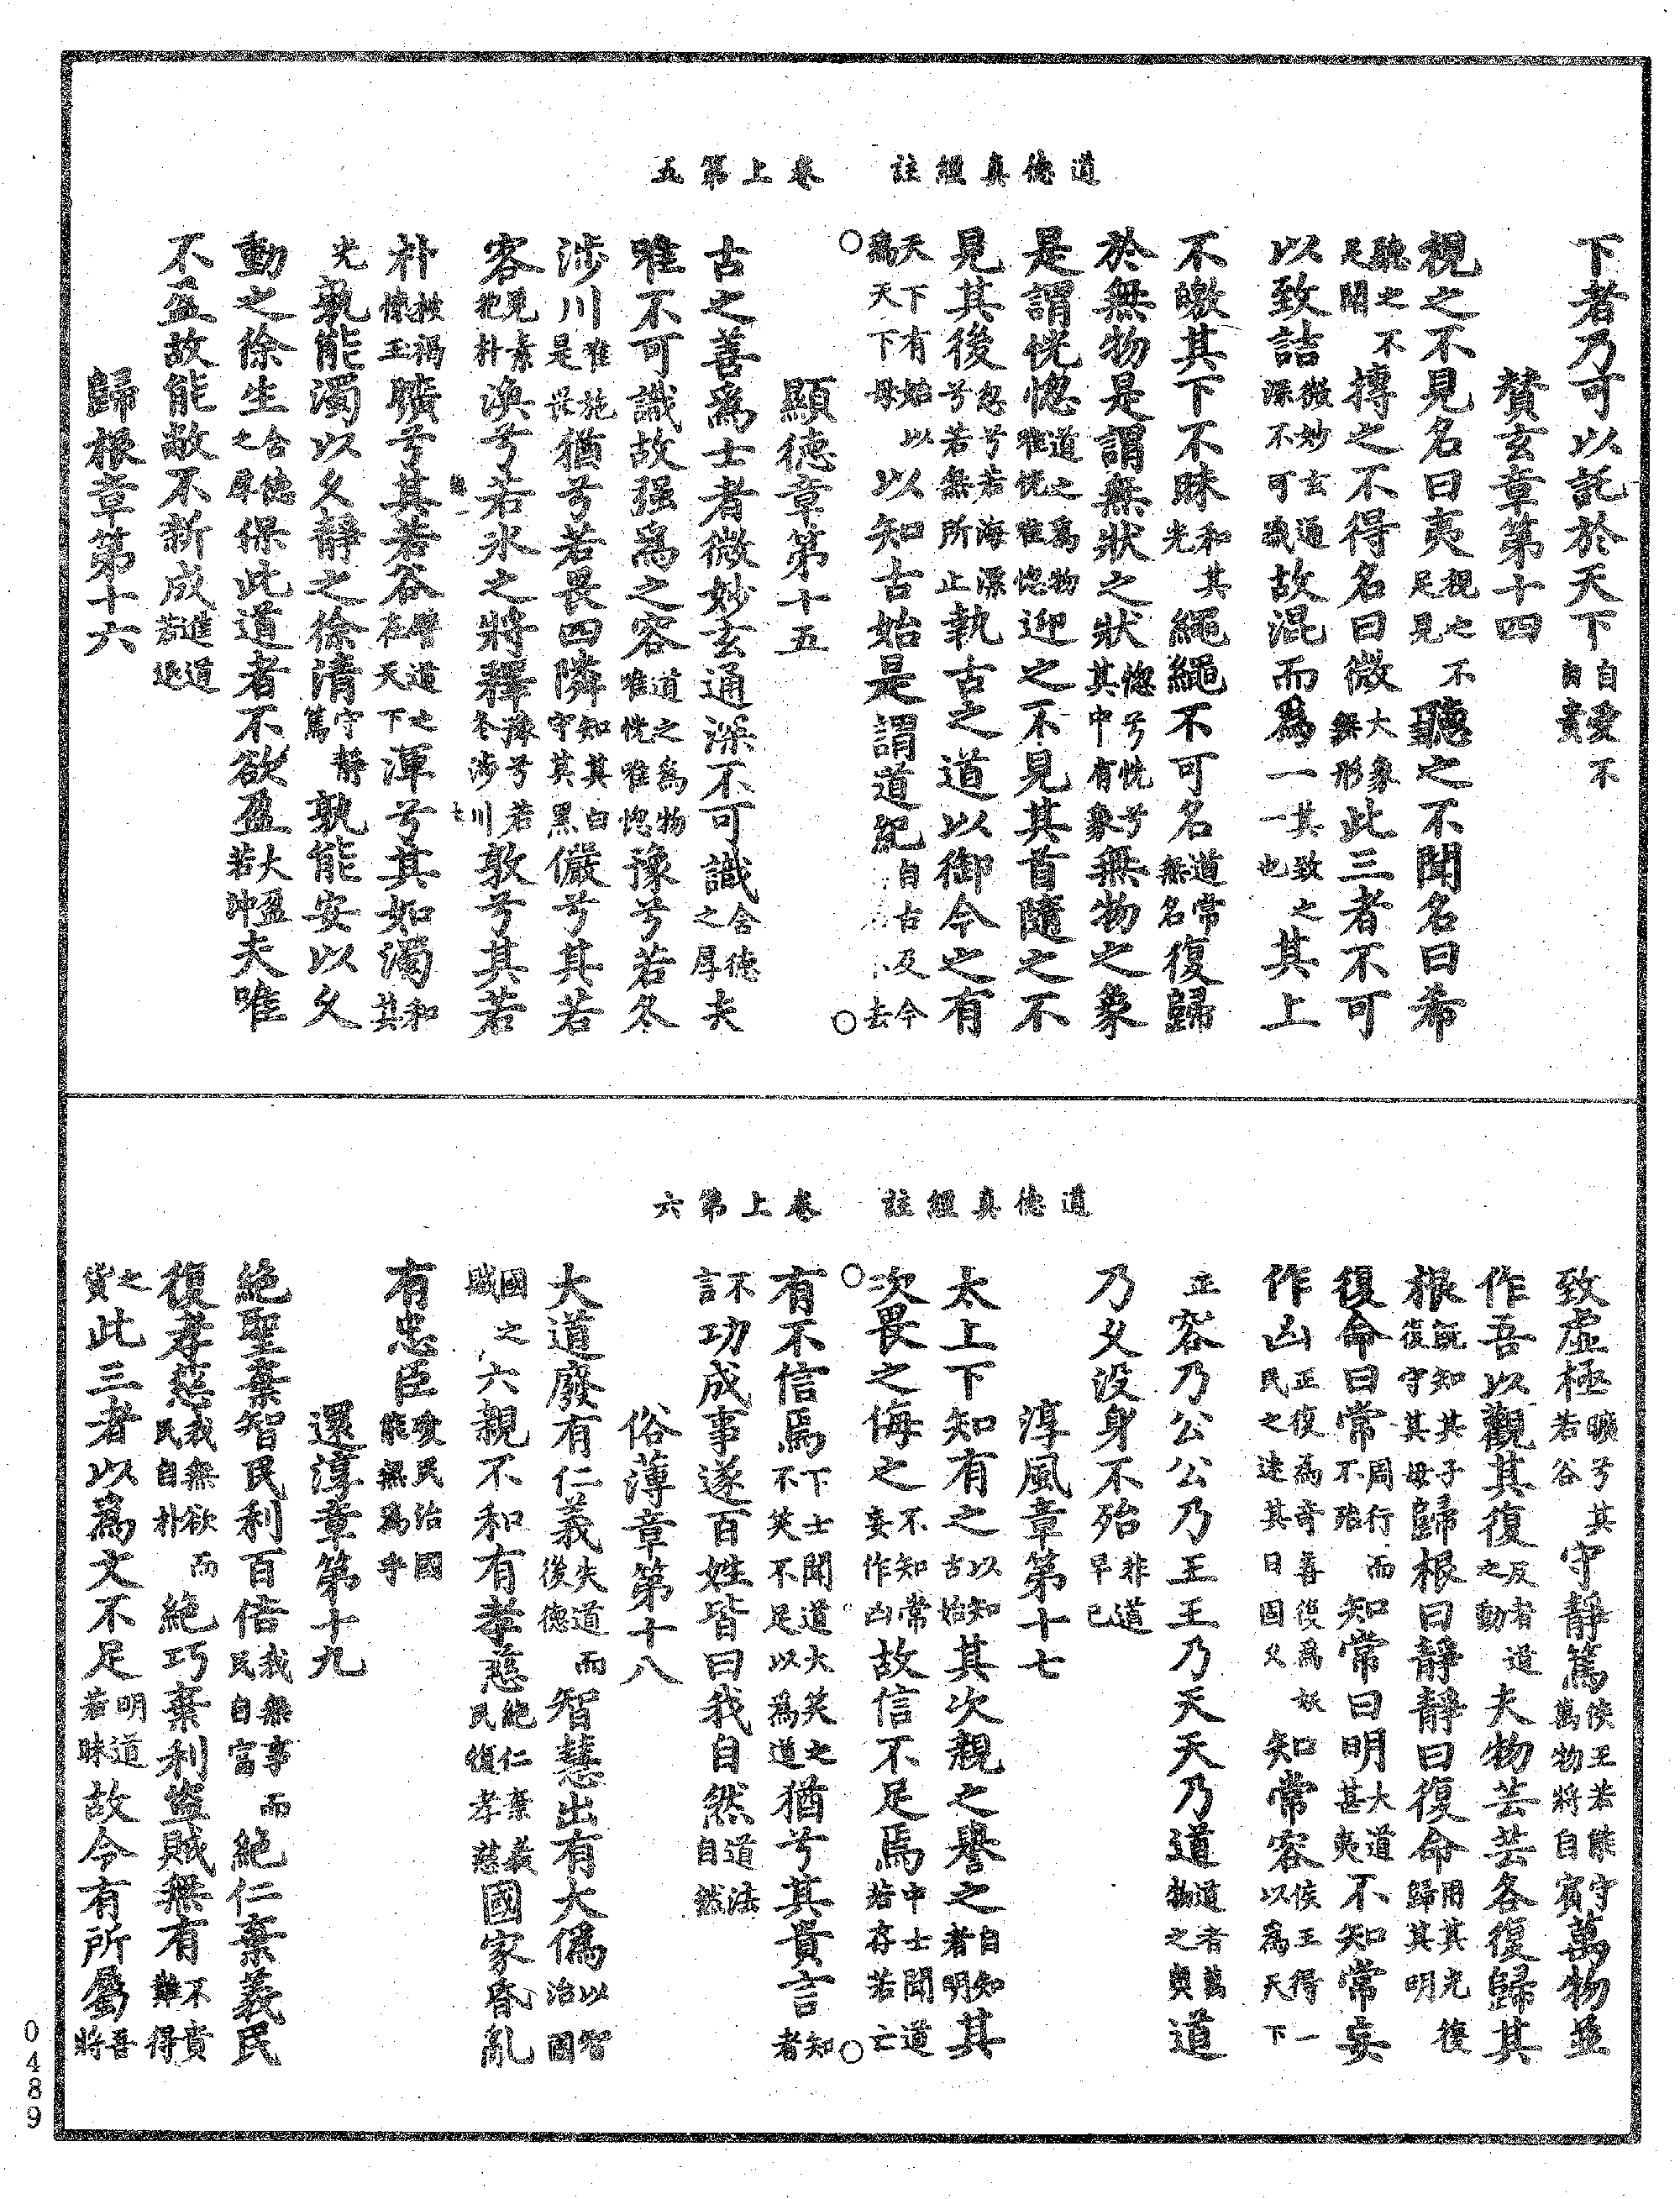 道德真經註 卷上第五
下者乃可以託於天下自愛不自貴
贊玄章第十四
視之不見名曰夷視之不足見聽之不聞名曰希
聽之不足聞搏之不得名曰微大象無形此三者不可
以致詰微妙玄通深不可識故混而為一其致之一也其上
不皦其下不昧和其光繩繩不可名道常無名復歸
於無物是謂無狀之狀惚兮恍兮其中有象無物之象
是謂恍惚道之為物惟恍惟惚迎之不見其首隨之不
見其後忽兮若海漂兮若無所止執古之道以御今之有
天下有始以為天下母以知古始是謂道紀自古及今去
顯德章第十五
古之善為士者微妙玄通深不可識含德之厚夫
唯不可識故强為之容道之為物惟恍惟惚豫兮若冬
涉川惟施是畏猶兮若畏四隣知其白守其黑儼兮其若
容見素抱朴渙兮若氷之將釋豫兮若冬涉川敦兮其若
朴被褐懷玉曠兮其若谷譬道之在天下渾兮其如濁和其
光孰能濁以久靜之徐清守靜篤孰能安以久
動之徐生含德之厚保此道者不欲盈大盈若冲夫唯
不盈故能敝不新成進道若退
歸根章第十六
道德真經註 卷上第六
致虛極曠兮其若谷守靜篤侯王若能守萬物將自賓萬物並
作吾以觀其復反者道之動夫物芸芸各復歸其
根既知其子復守其母歸根曰靜靜曰復命用其光復歸其明
復命曰常周行而不殆知常曰明大道甚夷不知常妄
作凶正復為奇善復為妖民之迷其日固久知常容侯王得一以為天下
正容乃公公乃王王乃天天乃道道者萬物之奧道
乃久没身不殆非道早已
淳風章第十七
太上下知有之以知古始其次親之譽之自知者明其
次畏之侮之不知常妄作凶故信不足焉中士聞道若存若亡
有不信焉下士聞道大笑之不笑不足以為道猶兮其貴言知者
不言功成事遂百姓皆曰我自然道法自然
俗薄章第十八
大道廢有仁義失道而後德智慧出有大偽以智治國
國之賊六親不和有孝慈絕仁棄義民復孝慈國家昏亂
有忠臣愛民治國能無為乎
還淳章第十九
絕聖棄智民利百倍我無事而民自富絕仁棄義民
復孝慈我無欲而民自朴絕巧棄利盜賊無有不貴難得
之貨此三者以為文不足明道若昧故今有所屬吾將
0489